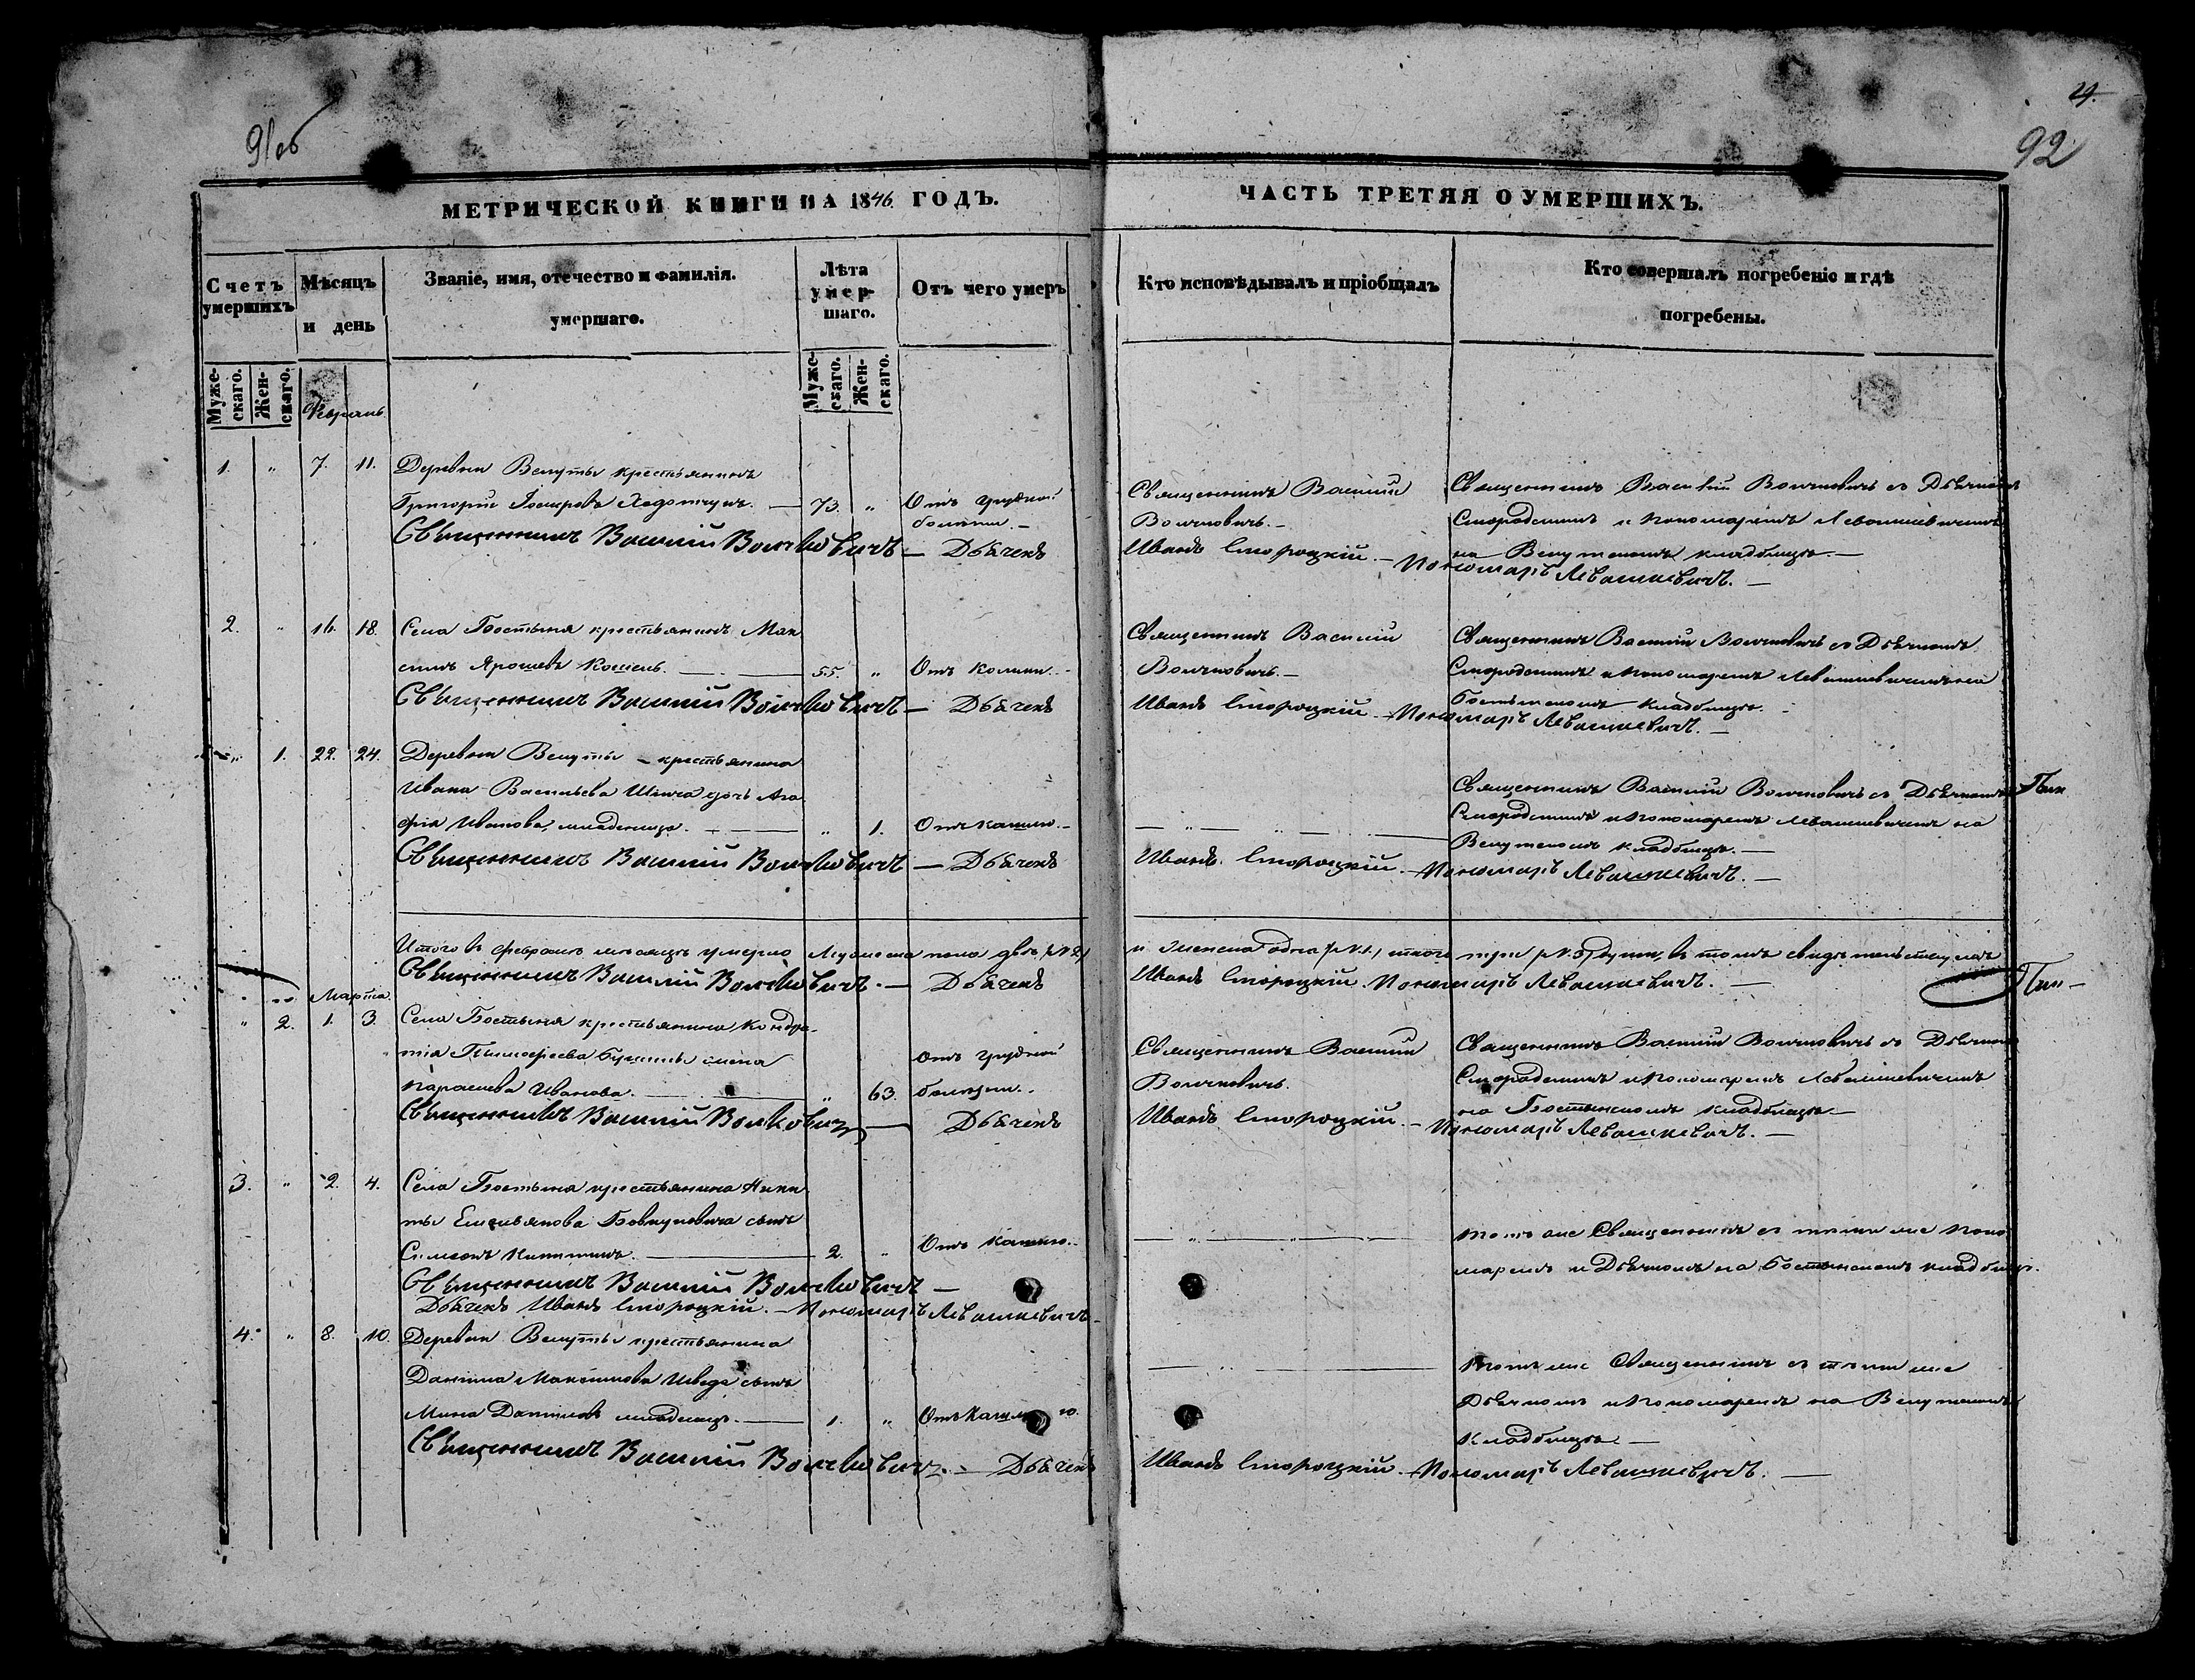 91об
24.
92
МЕТРИЧЕСКОЙ КНИГИ НА 1846 ГОДЪ.
ЧАСТЬ ТРЕТЯЯ О УМЕРШИХЪ.
Счетъ умершихъ
Мѣсяцъ и день
Званіе, имя, отечество и фамилія. умершаго.
Лѣта умер-шаго.
Отъ чего умеръ
Кто исповѣдывалъ и пріобщалъ
Кто совершалъ погребеніе и гдѣ погребены.
Муже-скаго.
Жен-скаго.
Муже-скаго.
Жен-скаго.
Февраль
1. " 7. 11. Деревни Велуты крестьянинъ
Григорій Ходотчукъ. — 73. " Отъ грудной
болѣзни. —
Священникъ Василій
Волчковичъ. —
Священникъ Василій Волчковичъ съ Дьячкомъ
Сцюродскимъ и Пономаремъ Левашкевичемъ
на Велутскомъ кладбищѣ. —
Священникъ Василій Волчковичъ — Дьячекъ Иванъ Сцюроцкій. — Пономарь Левашкевичъ. —
2. " 16. 18. Села Бостыня крестьянинъ Мак
симъ Ярошевъ Кошель. — 55. " Отъ
Священникъ Василій
Волчковичъ. —
Священникъ Василій Волчковичъ съ Дьячкомъ
Сцюродскимъ и Пономаремъ Левашкевичемъ на
Бостынскомъ кладбищѣ. —
Священникъ Василій Волчковичъ — Дьячекъ Иванъ Сцюроцкій — Пономарь Левашкевичъ. —
" 1. 22. 24. Деревни Велуты — крестьянина
Ивана Васильева дочь Ага
фія Иванова, младенца. — " 1. Отъ кашлю. —
Священникъ Василій Волчковичъ съ Дьячкомъ
Сцюродскимъ и Пономаремъ Левашкевичемъ на
Велутскомъ кладбищѣ. —
Священникъ Василій Волчковичъ — Дьячекъ Иванъ Сцюроцкій. — Пономарь Левашкевичъ. —
Итого въ февралѣ мѣсяцѣ умерло мужеска пола двѣ (№ 2) и женска одна (№ 1.) итого три (№ 3) души, въ томъ свидѣтельствуемъ
Священникъ Василій Волчковичъ. — Дьячекъ Иванъ Сцюроцкій. Пономарь Левашкевичъ. —
Марта.
" 2. 1. 3. Села Бостыня крестьянина Кондра-
тія Тимофеева жена
Параскева Иванова. — " 63. Отъ грудной
болѣзни. .
Священникъ Василій
Волчковичъ.
Священникъ Василій Волчковичъ съ Дьячкомъ
Сцюродскимъ и Пономаремъ Левашкевичемъ
на Бостынскомъ кладбищѣ. —
Священникъ Василій Волчковичъ — Дьячекъ Иванъ Сцюроцкій. — Пономарь Левашкевичъ. —
3. " 2. 4. Села Бостыня крестьянина Ники
ты Емельянова сынъ
Симеонъ Никитинъ. — 2. " Отъ кашлю. —
тотъ же Священникъ съ тѣмъ же Поно
маремъ и Дьячкомъ на Бостынскомъ кладбищѣ.
Священникъ Василій Волчковичъ —
Дьячекъ Иванъ Сцюроцкій. — Пономарь Левашкевичъ —
4. " 8. 10. Деревни Велуты крестьянина
Даніила Максимова Шведа сынъ
Мина Даниловъ младенецъ. — 1. " Отъ кашлю.
тотъ же Священникъ съ тѣмъ же
Дьячкомъ и Пономаремъ на Велутскомъ
кладбищѣ. —
Священникъ Василій Волчковичъ. — Дьячекъ Иванъ Сцюроцкій. — Пономарь Левашкевичъ. —